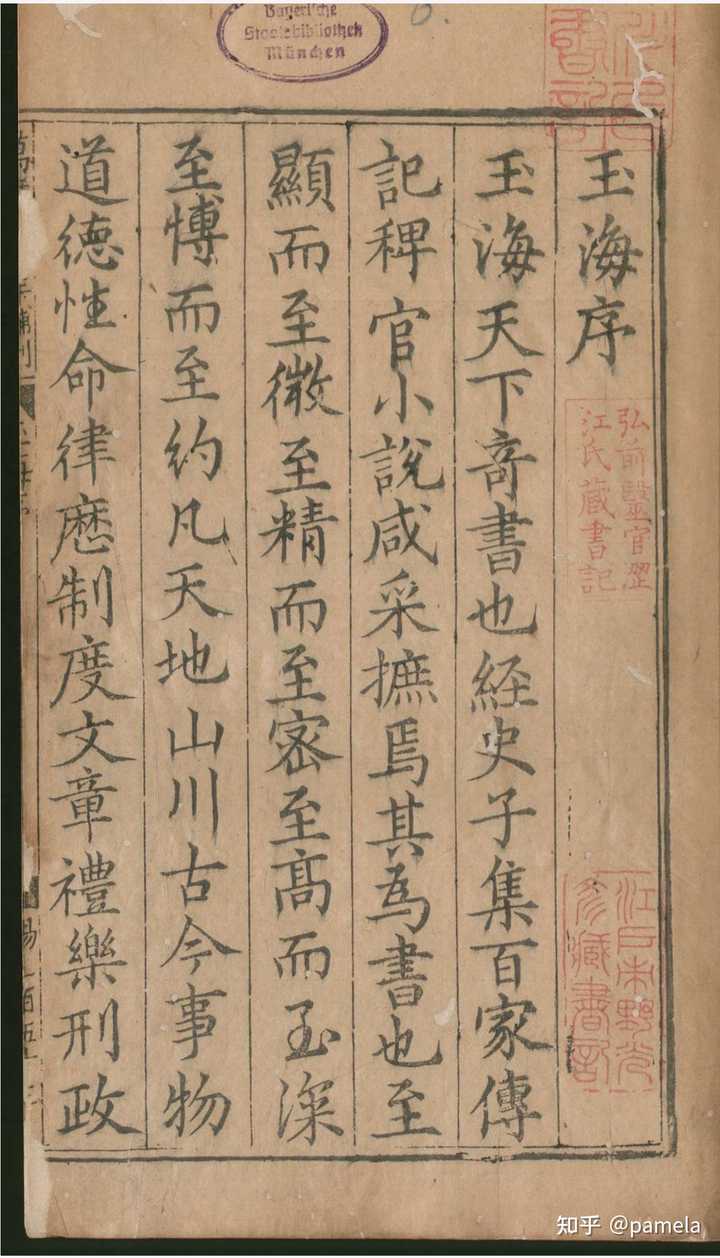 Bayerische
Staatsbibliothek
München
6.
玉海序
玉海天下奇書也経史子集百家傳
記稗官小說咸采摭焉其為書也至
顯而至微至精而至宻至髙而至深
至博而至約凡天地山川古今事物
道德性命律曆制度文章禮樂刑政
弘前醫官澀
江氏藏書記
藏書記
知乎 @pamela